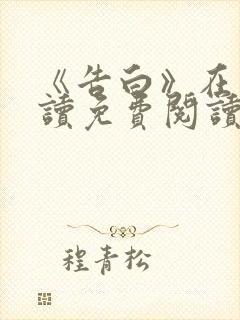 《告白》在
讀免費閱讀
程青松